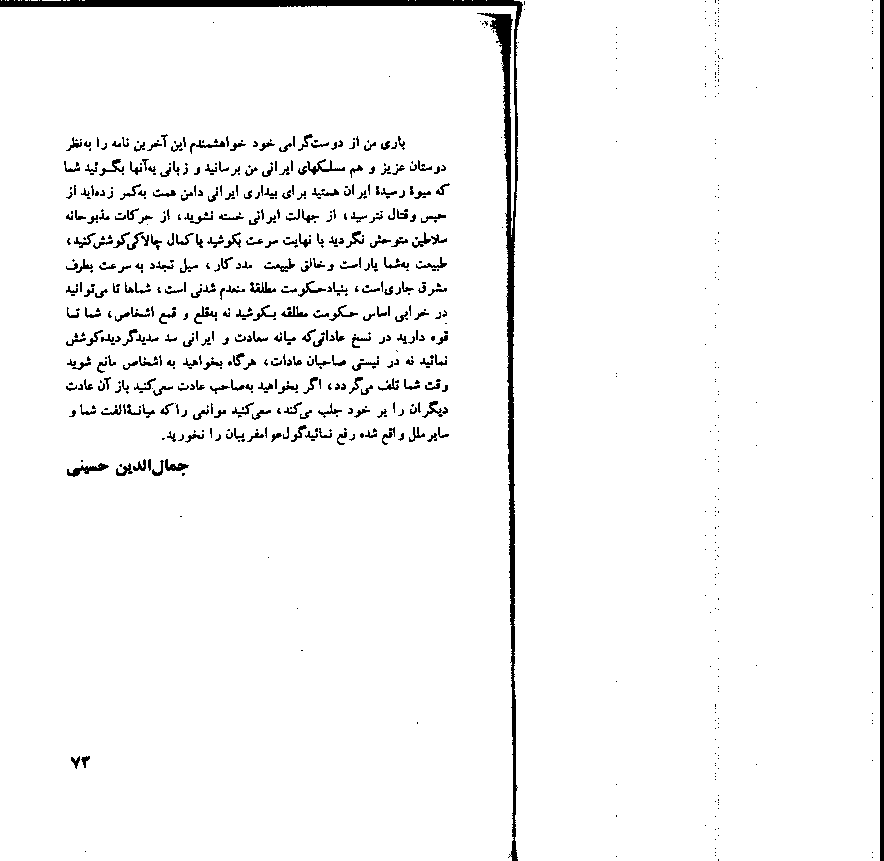 باری من از دوست‌گرامی خود خواهشمندم این آخرین نامه را به‌نظر
دوستان عزیز و هم مسلکهای ایرانی من برسانید و زبانی به‌آنها بگوئید شما
که میوهٔ رسیدهٔ ایران هستید برای بیداری ایرانی دامن همت به‌کمر زده‌اید از
حبس وقتال نترسید، از جهالت ایرانی خسته نشوید، از حرکات مذبوحانه
سلاطین متوحش نگردید با نهایت سرعت بکوشید باکمال چالاکی‌کوشش‌کنید،
طبیعت به‌شما یار است و خالق طبیعت مددکار، سیل تجدد به سرعت بطرف
مشرق جاری‌است، بنیادحکومت مطلقهٔ منعدم شدنی است، شماها تا می‌توانید
در خرابی اساس حکومت مطلقه بکوشید نه به‌قلع و قمع اشخاص، شما تا
قوه دارید در نسخ عاداتی‌که میانه سعادت و ایرانی سد سدیدگردیده‌کوشش
نمائید نه در نیستی صاحبان عادات، هرگاه بخواهید به اشخاص مانع شوید
وقت شما تلف می‌گردد، اگر بخواهید به‌صاحب عادت سعی‌کنید باز آن عادت
دیگران را بر خود جلب می‌کند، سعی‌کنید موانعی راکه میانهٔ‌الفت شما و
سایر ملل واقع شده رفع نمائیدگول‌عوامفریبان را نخورید.
جمال‌الدین حسینی
۷۳